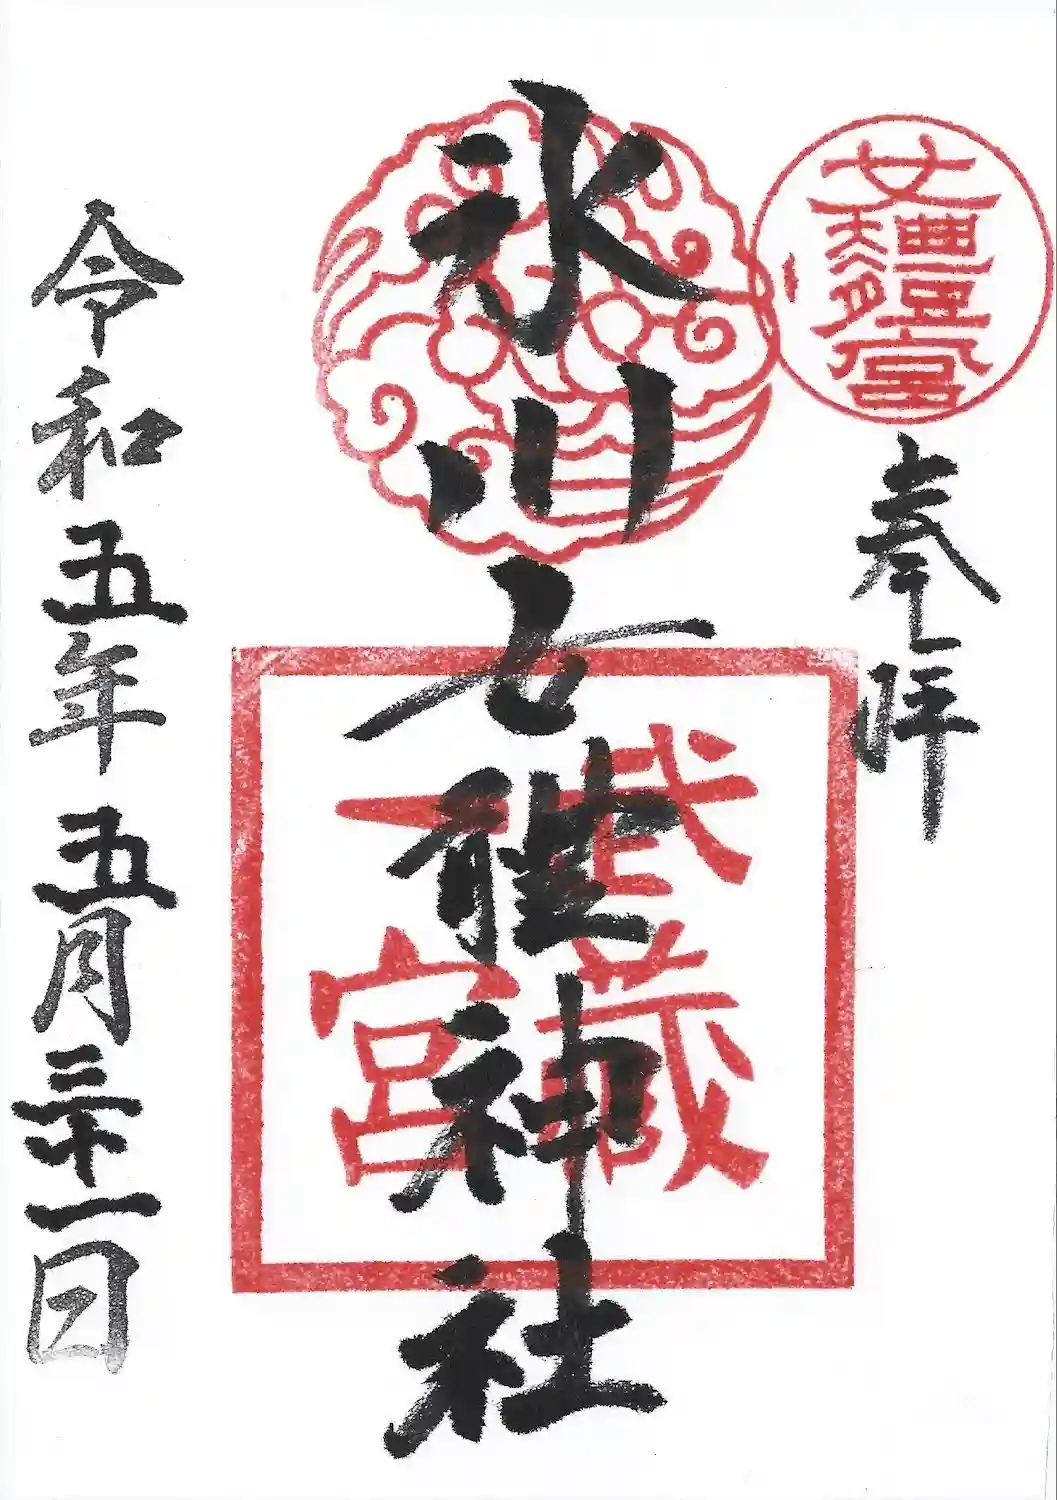 女體宮
奉拝
氷川女體神社
武蔵
一宮
令和五年五月三十一日